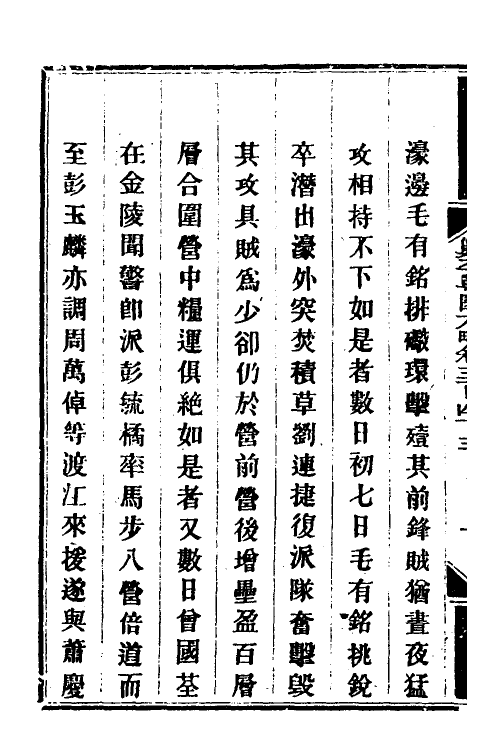 濠邊毛有銘排礮環擊殪其前鋒賊猶晝夜猛
攻相持不下如是者數日初七日毛有銘挑銳
卒潛出濠外突焚積草劉連捷復派隊奮擊毀
其攻具賊爲少卻仍於營前營後增壘盈百層
層合圍營中糧運俱絕如是者又數日曾國荃
在金陵聞警卽派彭毓橘率馬步八營倍道而
至彭玉麟亦調周萬倬等渡江來援遂與蕭慶